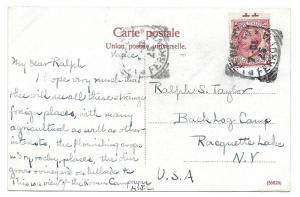 Carte postale
Union postale universelle.
My dear Ralph
I hope very much that
the will see all these strange
foreign places, with many
agricultural as well as other
interests, the flourishing crops
in rocky places, the
vineyard on hillside
This is a view of the Roman Campagna
Ralph S. Taylor
Back Log Camp
Racquette Lake
N.Y
U.S.A